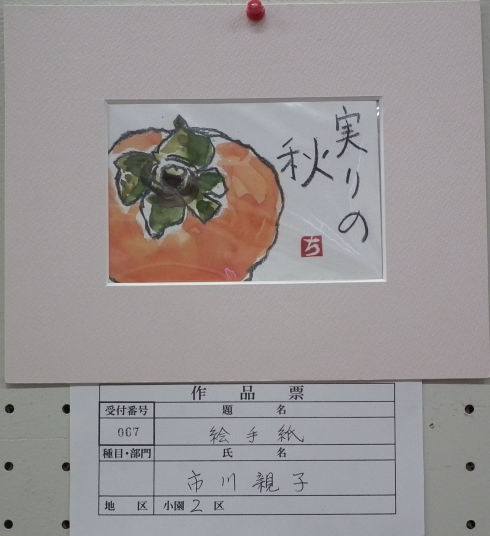 実りの
秋
ち
作品票
受付番号 題名
067 絵手紙
種目・部門 氏名
市川親子
地区 小園2区